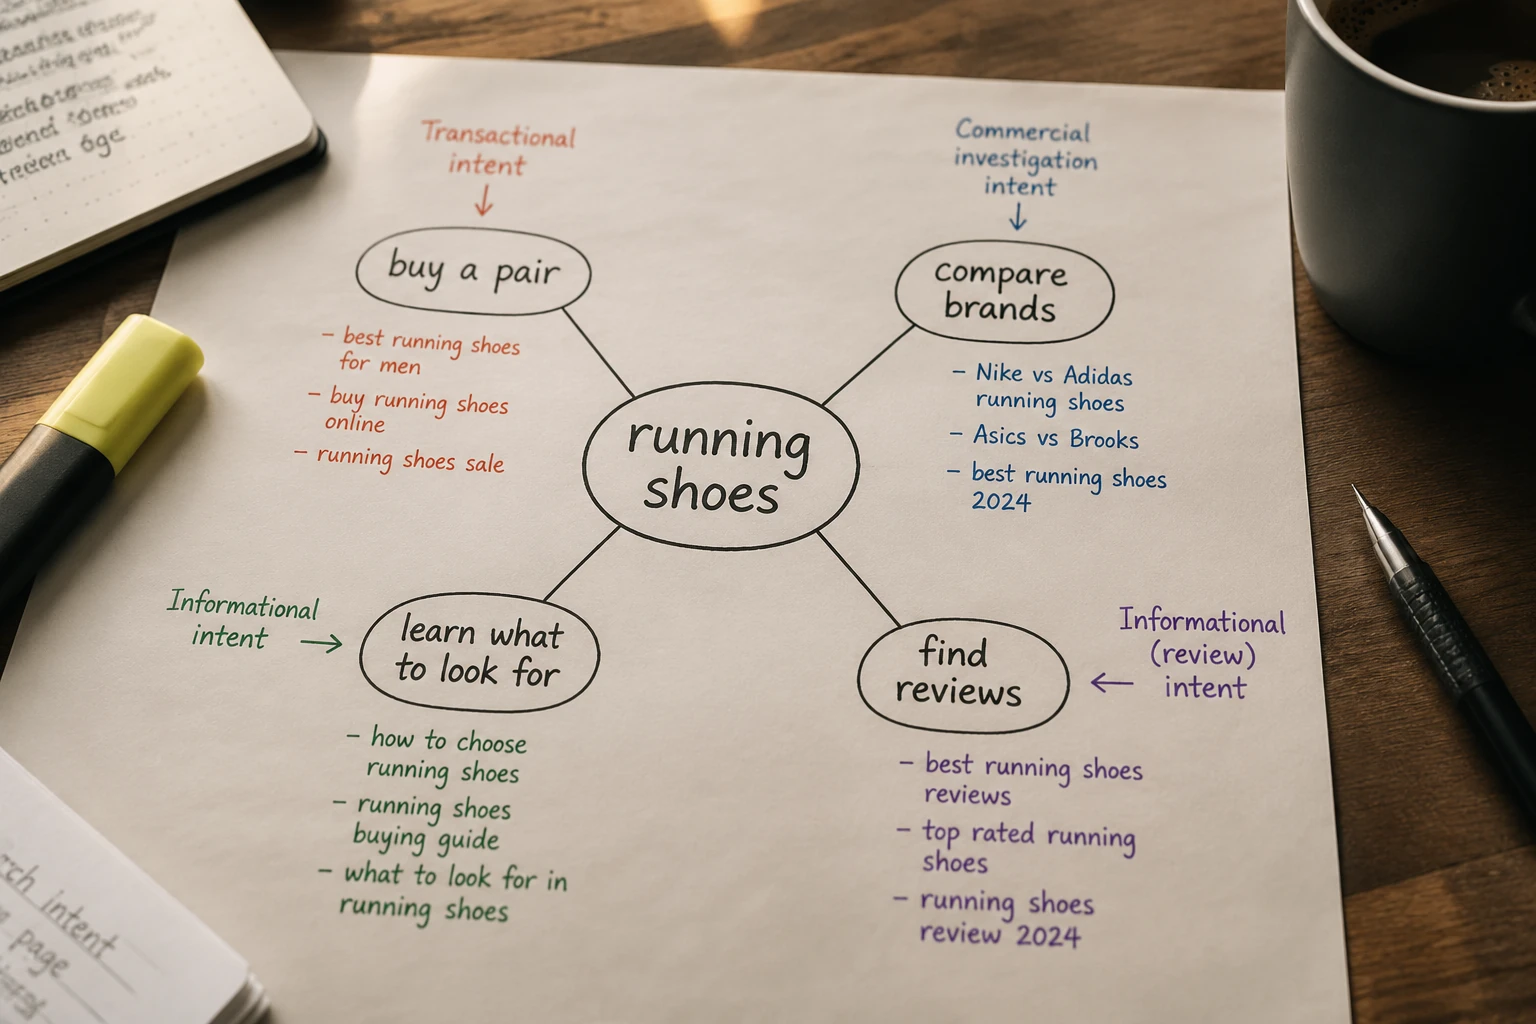 Transactional
intent
↓
buy a pair
- best running shoes
for men
- buy running shoes
online
- running shoes sale
Commercial
investigation
intent
↓
compare
brands
- Nike vs Adidas
running shoes
- Asics vs Brooks
- best running shoes
2024
running
shoes
Informational
intent →
learn what
to look for
- how to choose
running shoes
- running shoes
buying guide
- what to look for in
running shoes
Informational
(review)
← intent
find
reviews
- best running shoes
reviews
- top rated running
shoes
- running shoes
review 2024
intent
page